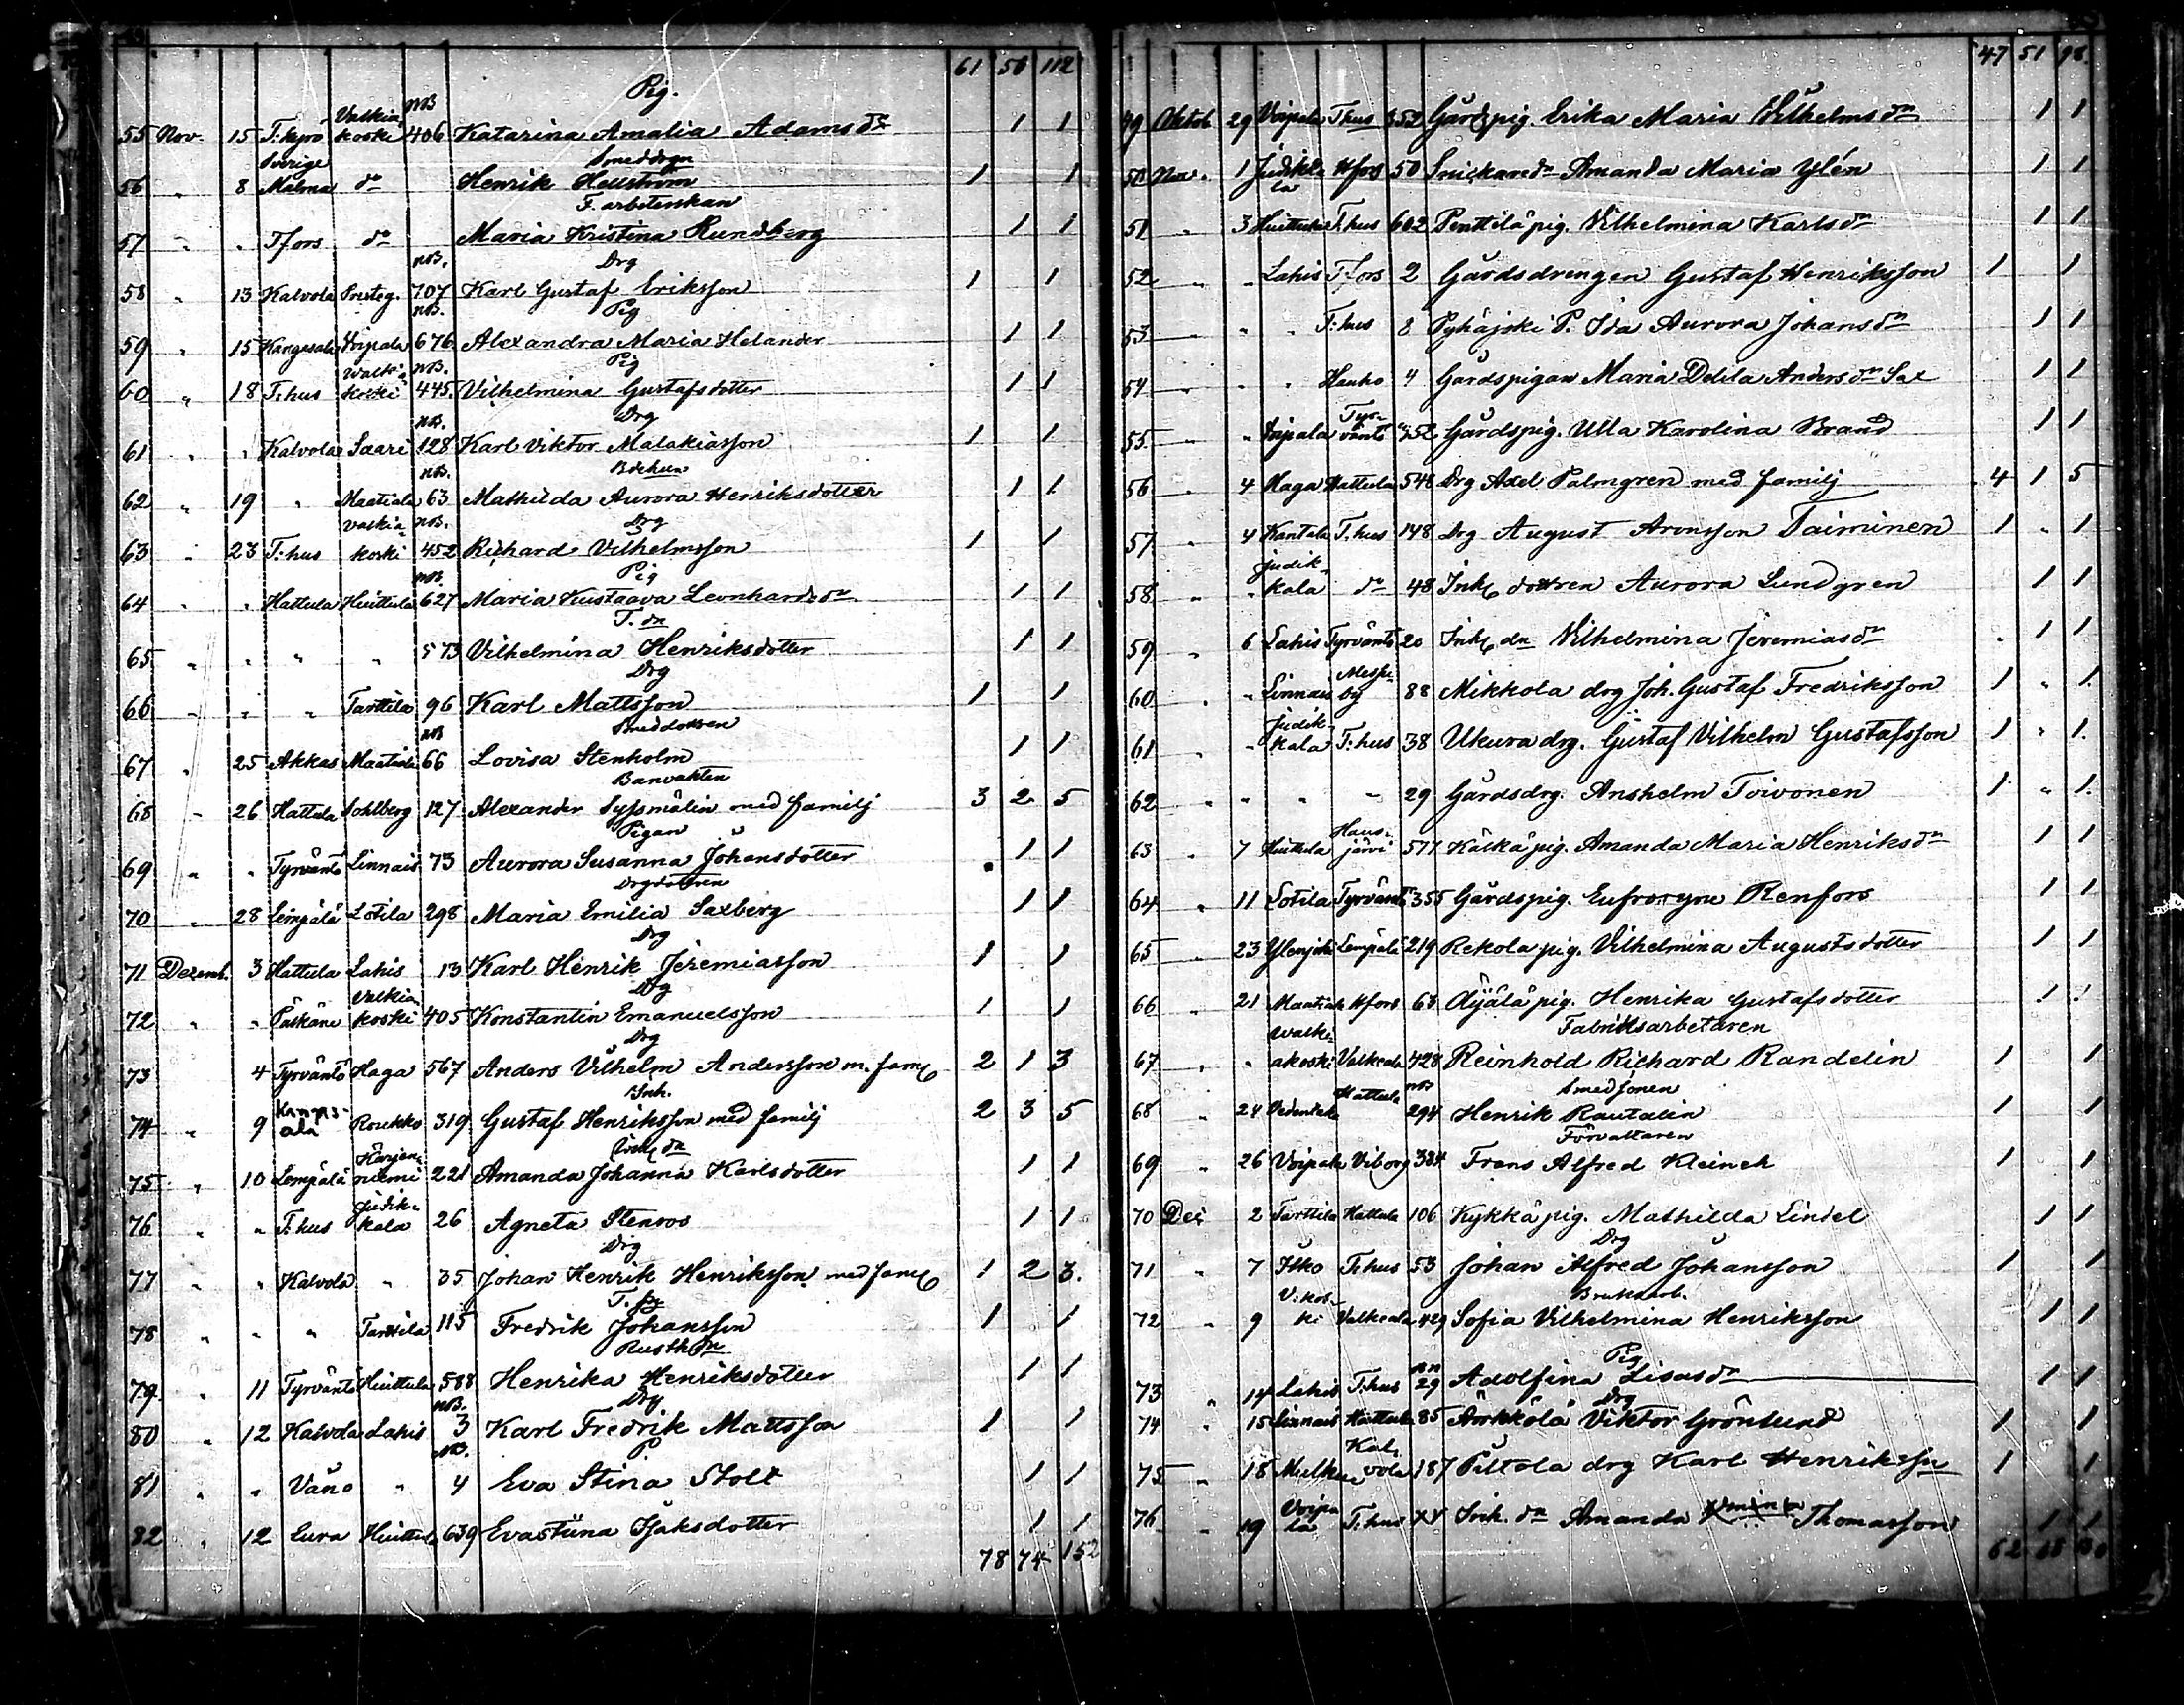 61 50 112
Pig.
55 Nov. 15 T:kyrö Valkiakoski NB 406 Katarina Amalia Adams dr 1 1
Smeddrgn
56 " 8 Sverige Malma do Henrik Hellström 1 1
F. arbeterskan
57 " " Tfors do Maria Kristina Rundberg 1 1
Drg
58 " 13 Kalvola Presteg. NB. 707 Karl Gustaf Eriksson 1 1
Pig
59 " 15 Kangasala Voipala NB. 676 Alexandra Maria Helander 1 1
Pig
60 " 18 T:hus Walkiakoski NB. 445 Vilhelmina Gustafsdotter 1 1
Drg
61 " " Kalvola Saari NB. 128 Karl Viktor Malakiasson 1 1
62 " 19 " Maatiala NB. 63 Mathilda Aurora Henriksdotter 1 1
Drg
63 " 23 T:hus Valkiakoski NB. 452 Richard Vilhelmsson 1 1
Pig
64 " " Hattula Huittula NB. 627 Maria Kustaava Leonhards dr 1 1
T. dr
65 " " " " 573 Vilhelmina Henriksdotter 1 1
Drg
66 " " " Tarttila 96 Karl Mattsson 1 1
Smeddottren
67 " 25 Akkas Maatiala NB 66 Lovisa Stenholm 1 1
Banvakten
68 " 26 Hattula Sohlberg 127 Alexander Syssmälin med familj 3 2 5
Pigan
69 " " Tyrväntö Linnais 73 Aurora Susanna Johansdotter 1 1
Drgdottren
70 " 28 Lempälä Lotila 298 Maria Emilia Saxberg 1 1
Drg
71 Dezemb. 3 Hattula Lahis 13 Karl Henrik Jeremiasson 1 1
Drg
72 " " Pälkäne Valkiakoski 405 Konstantin Emanuelsson 1 1
Drg
73 4 Tyrväntö Haga 567 Anders Vilhelm Andersson m. fam 2 1 3
Inh.
74 " 9 Kangasala Roukko 319 Gustaf Henriksson med familj 2 3 5
Inh dr
75 " 10 Lempälä Harjuniemi 221 Amanda Johanna Karlsdotter 1 1
76 " " T:hus Judikkala 26 Agneta Stenroos 1 1
Drg
77 " " Kalvola " 35 Johan Henrik Henriksson med fam 1 2 3.
T. p
78 " " " Tarttila 115 Fredrik Johansson 1 1
Rusth dr
79 " 11 Tyrväntö Huittula 588 Henrika Henriksdotter 1 1
Drg
80 " 12 Kalvola Lahis NB. 3 Karl Fredrik Mattsson 1 1
P
81 " " Vånö " NB. 4 Eva Stina Stolt 1 1
82 " 12 Eura Huittula 639 Evastiina Isaksdotter 1 1
78 74 152
47 51 98.
49 Oktob 29 Voipala T:hus 352 Gårdspig. Erika Maria Vilhelms dr 1 1
50 Nov. 1 Judikkala Hfors 50 Snickare dr Amanda Maria Ylén 1 1
51 " 3 Huittula T:hus 602 Penttilä pig. Vilhelmina Karls dr 1 1
52 " " Lahis T:fors 2 Gårdsdrengen Gustaf Henriksson 1 1
53 " " T:hus 8 Pyhäjoki P. Ida Aurora Johans dr 1 1
54 " " Hauho 4 Gårdspigan Maria Delila Anders dr Sax 1 1
55 " " Voipala Tyrväntö 352 Gårdspig. Ulla Karolina Brand 1 1
56 " 4 Haga Hattula 548 Drg Axel Palmgren med familj 4 1 5
57 " 4 Kantala T:hus 148 Drg August Aronsson Taiminen 1 " 1
58 " " Judikkala do 48 Inh dottren Aurora Lundgren 1 1
59 " 6 Lahis Tyrväntö 20 Inh dr Vilhelmina Jeremias dr 1 1
60 " " Linnais by 88 Mikkola drg Joh. Gustaf Fredriksson 1 " 1.
61 " " Judikkala T:hus 38 Ukura drg. Gustaf Vilhelm Gustafsson 1 " 1.
62 " " " " 29 Gårdsdrg. Anshelm Toivonen 1 " 1.
63 " 7 Huittula Hausjärvi 577 Käkkä pig. Amanda Maria Henriks dr 1 1
64 " 11 Lotila Tyrväntö 355 Gårdspig. Eufrosyne Renfors 1 1
65 " 23 Lempälä 219 Rekola pig. Vilhelmina Augustsdotter 1 1
66 " 21 Maatiala Hfors 63 Äijälä pig. Henrika Gustafsdotter 1 1
Fabriksarbetaren
67 " " Walkiakoski Valkeala 428 Reinhold Richard Randelin 1 1
Smedsonen
68 " 24 Hattula NB 294 Henrik Rautalin 1 1
Förvaltaren
69 " 26 Voipala Viborg 384 Frans Alfred Kleineh 1 1
70 Dec 2 Tarttila Hattula 106 Kykkä pig. Mathilda Lindel 1 1
Drg
71 " 7 Itko T:hus 53 Johan Alfred Johansson 1 1
Bruksarb.
72 " 9 V:koski Valkeala 429 Sofia Vilhelmina Henriksson 1 1
Pig
73 " 14 Lahis T:hus 29 Adolfina Lisas dr 1 1
Drg
74 " 15 Linnais Hattula 85 Arkkola Viktor Grönlund 1 1
75 " 18 Kalvola 187 Piltola drg Karl Henriksson 1 1
76 " 19 Voipala T:hus Inh. dr Amanda Thomasson 1 1
62 68